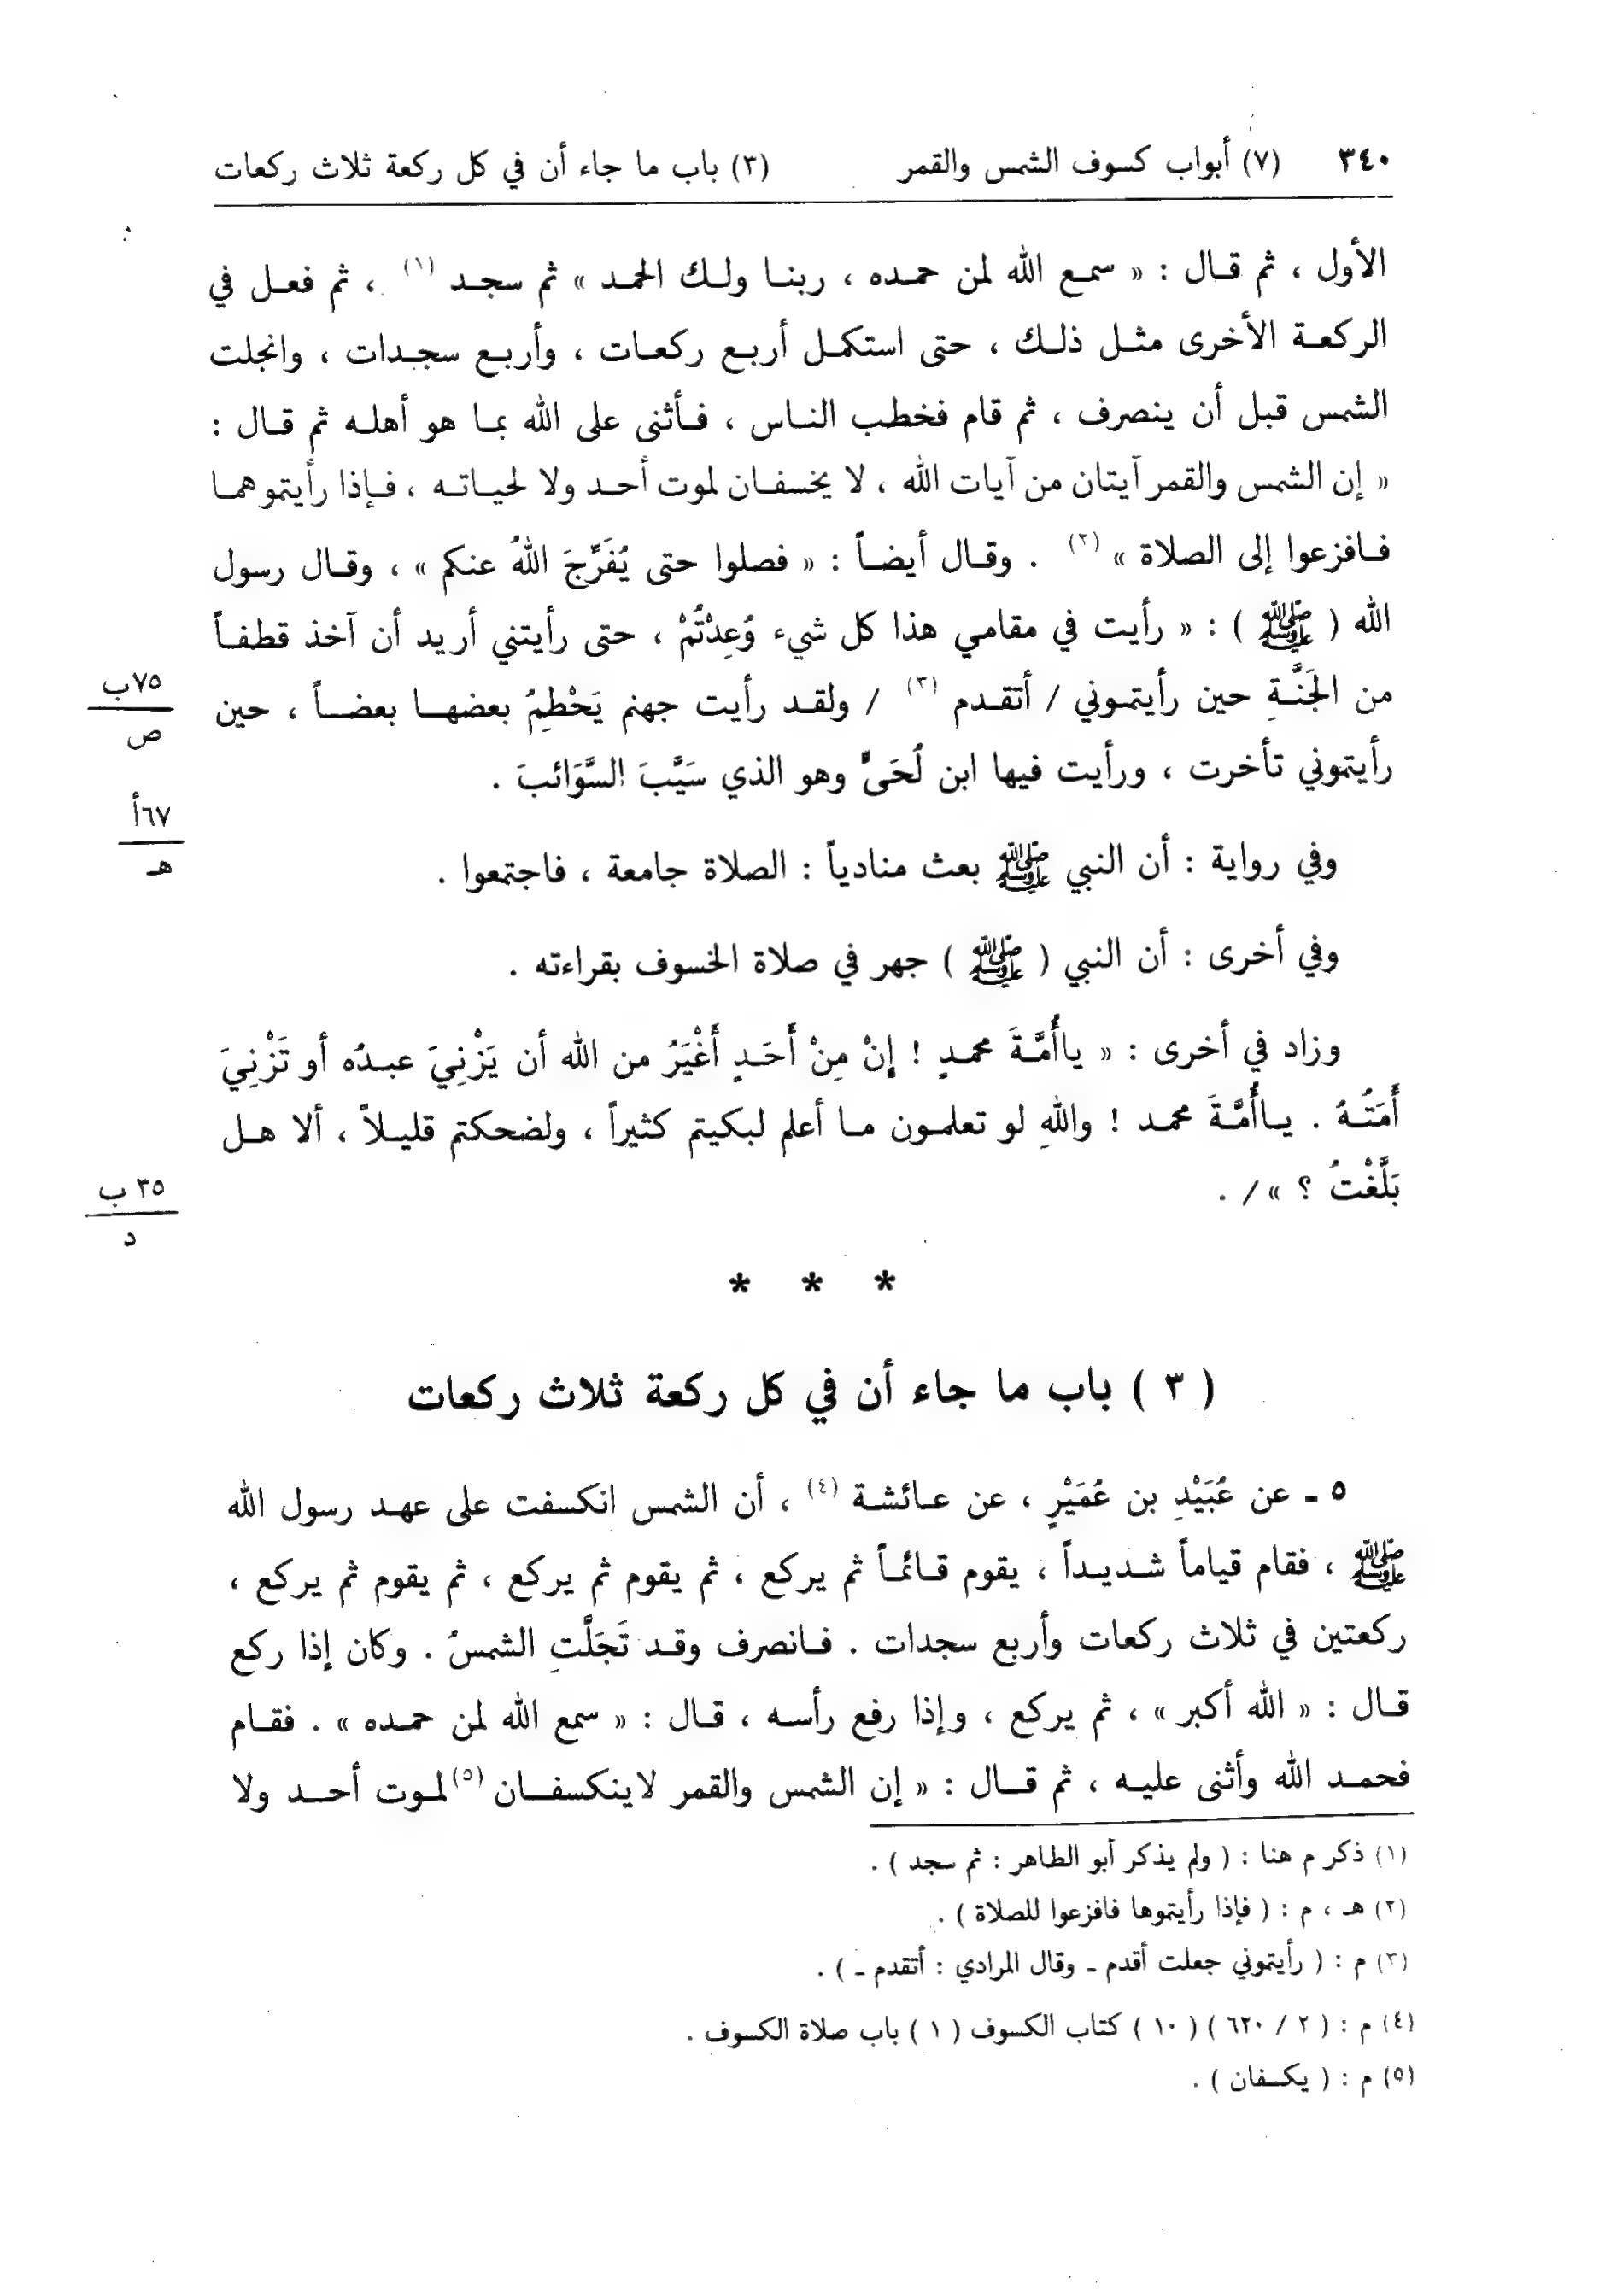 ٣٤٠ (٧) أبواب كسوف الشمس والقمر (٣) باب ما جاء أن في كل ركعة ثلاث ركعات
الأول ، ثم قال : « سمع الله لمن حمده ، ربنا ولك الحمد » ثم سجد (١) ، ثم فعل في
الركعة الأخرى مثل ذلك ، حتى استكمل أربع ركعات ، وأربع سجدات ، وانجلت
الشمس قبل أن ينصرف ، ثم قام فخطب الناس ، فأثنى على الله بما هو أهله ثم قال :
« إن الشمس والقمر آيتان من آيات الله ، لا يخسفان لموت أحد ولا لحياته ، فإذا رأيتموهما
فافزعوا إلى الصلاة » (٢) . وقال أيضاً : « فصلوا حتى يُفَرِّجَ اللهُ عنكم » ، وقال رسول
الله ( ﷺ ) : « رأيت في مقامي هذا كل شيء وُعِدْتُمْ ، حتى رأيتني أريد أن آخذ قطفاً
من الجَنَّةِ حين رأيتموني / أتقدم (٣) / ولقد رأيت جهنم يَحْطِمُ بعضها بعضاً ، حين
٧٥ب
ص
رأيتموني تأخرت ، ورأيت فيها ابن لُحَىٍّ وهو الذي سَيَّبَ السَّوَائبَ .
٦٧أ
هـ
وفي رواية : أن النبي ﷺ بعث منادياً : الصلاة جامعة ، فاجتمعوا .
وفي أخرى : أن النبي ( ﷺ ) جهر في صلاة الخسوف بقراءته .
وزاد في أخرى : « ياأُمَّةَ محمدٍ ! إنْ مِنْ أَحَدٍ أَغْيَرُ من الله أن يَزْنِيَ عبدُه أو تَزْنِيَ
أَمَتُهُ . ياأُمَّةَ محمد ! واللهِ لو تعلمون ما أعلم لبكيتم كثيراً ، ولضحكتم قليلاً ، ألا هل
بَلَّغْتُ ؟ »/ .
٣٥ ب
د
* * *
( ٣ ) باب ما جاء أن في كل ركعة ثلاث ركعات
٥ ـ عن عُبَيْدِ بن عُمَيْرٍ ، عن عائشة (٤) ، أن الشمس انكسفت على عهد رسول الله
ﷺ ، فقام قياماً شديداً ، يقوم قائماً ثم يركع ، ثم يقوم ثم يركع ، ثم يقوم ثم يركع ،
ركعتين في ثلاث ركعات وأربع سجدات . فانصرف وقد تَجَلَّتِ الشمسُ . وكان إذا ركع
قال : « الله أكبر » ، ثم يركع ، وإذا رفع رأسه ، قال : « سمع الله لمن حمده » . فقام
فحمد الله وأثنى عليه ، ثم قال : « إن الشمس والقمر لاينكسفان (٥) لموت أحد ولا
(١) ذكر م هنا : ( ولم يذكر أبو الطاهر : ثم سجد ) .
(٢) هـ ، م : ( فإذا رأيتموها فافزعوا للصلاة ) .
(٣) م : ( رأيتموني جعلت أقدم ـ وقال المرادي : أتقدم ـ ) .
(٤) م : ( ٢ / ٦٢٠ ) ( ١٠ ) كتاب الكسوف ( ١ ) باب صلاة الكسوف .
(٥) م : ( يكسفان ) .